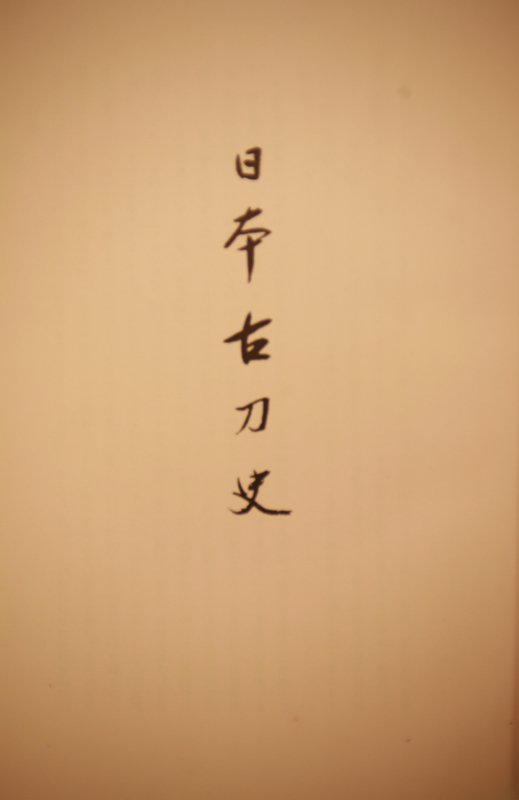 日本古刀史